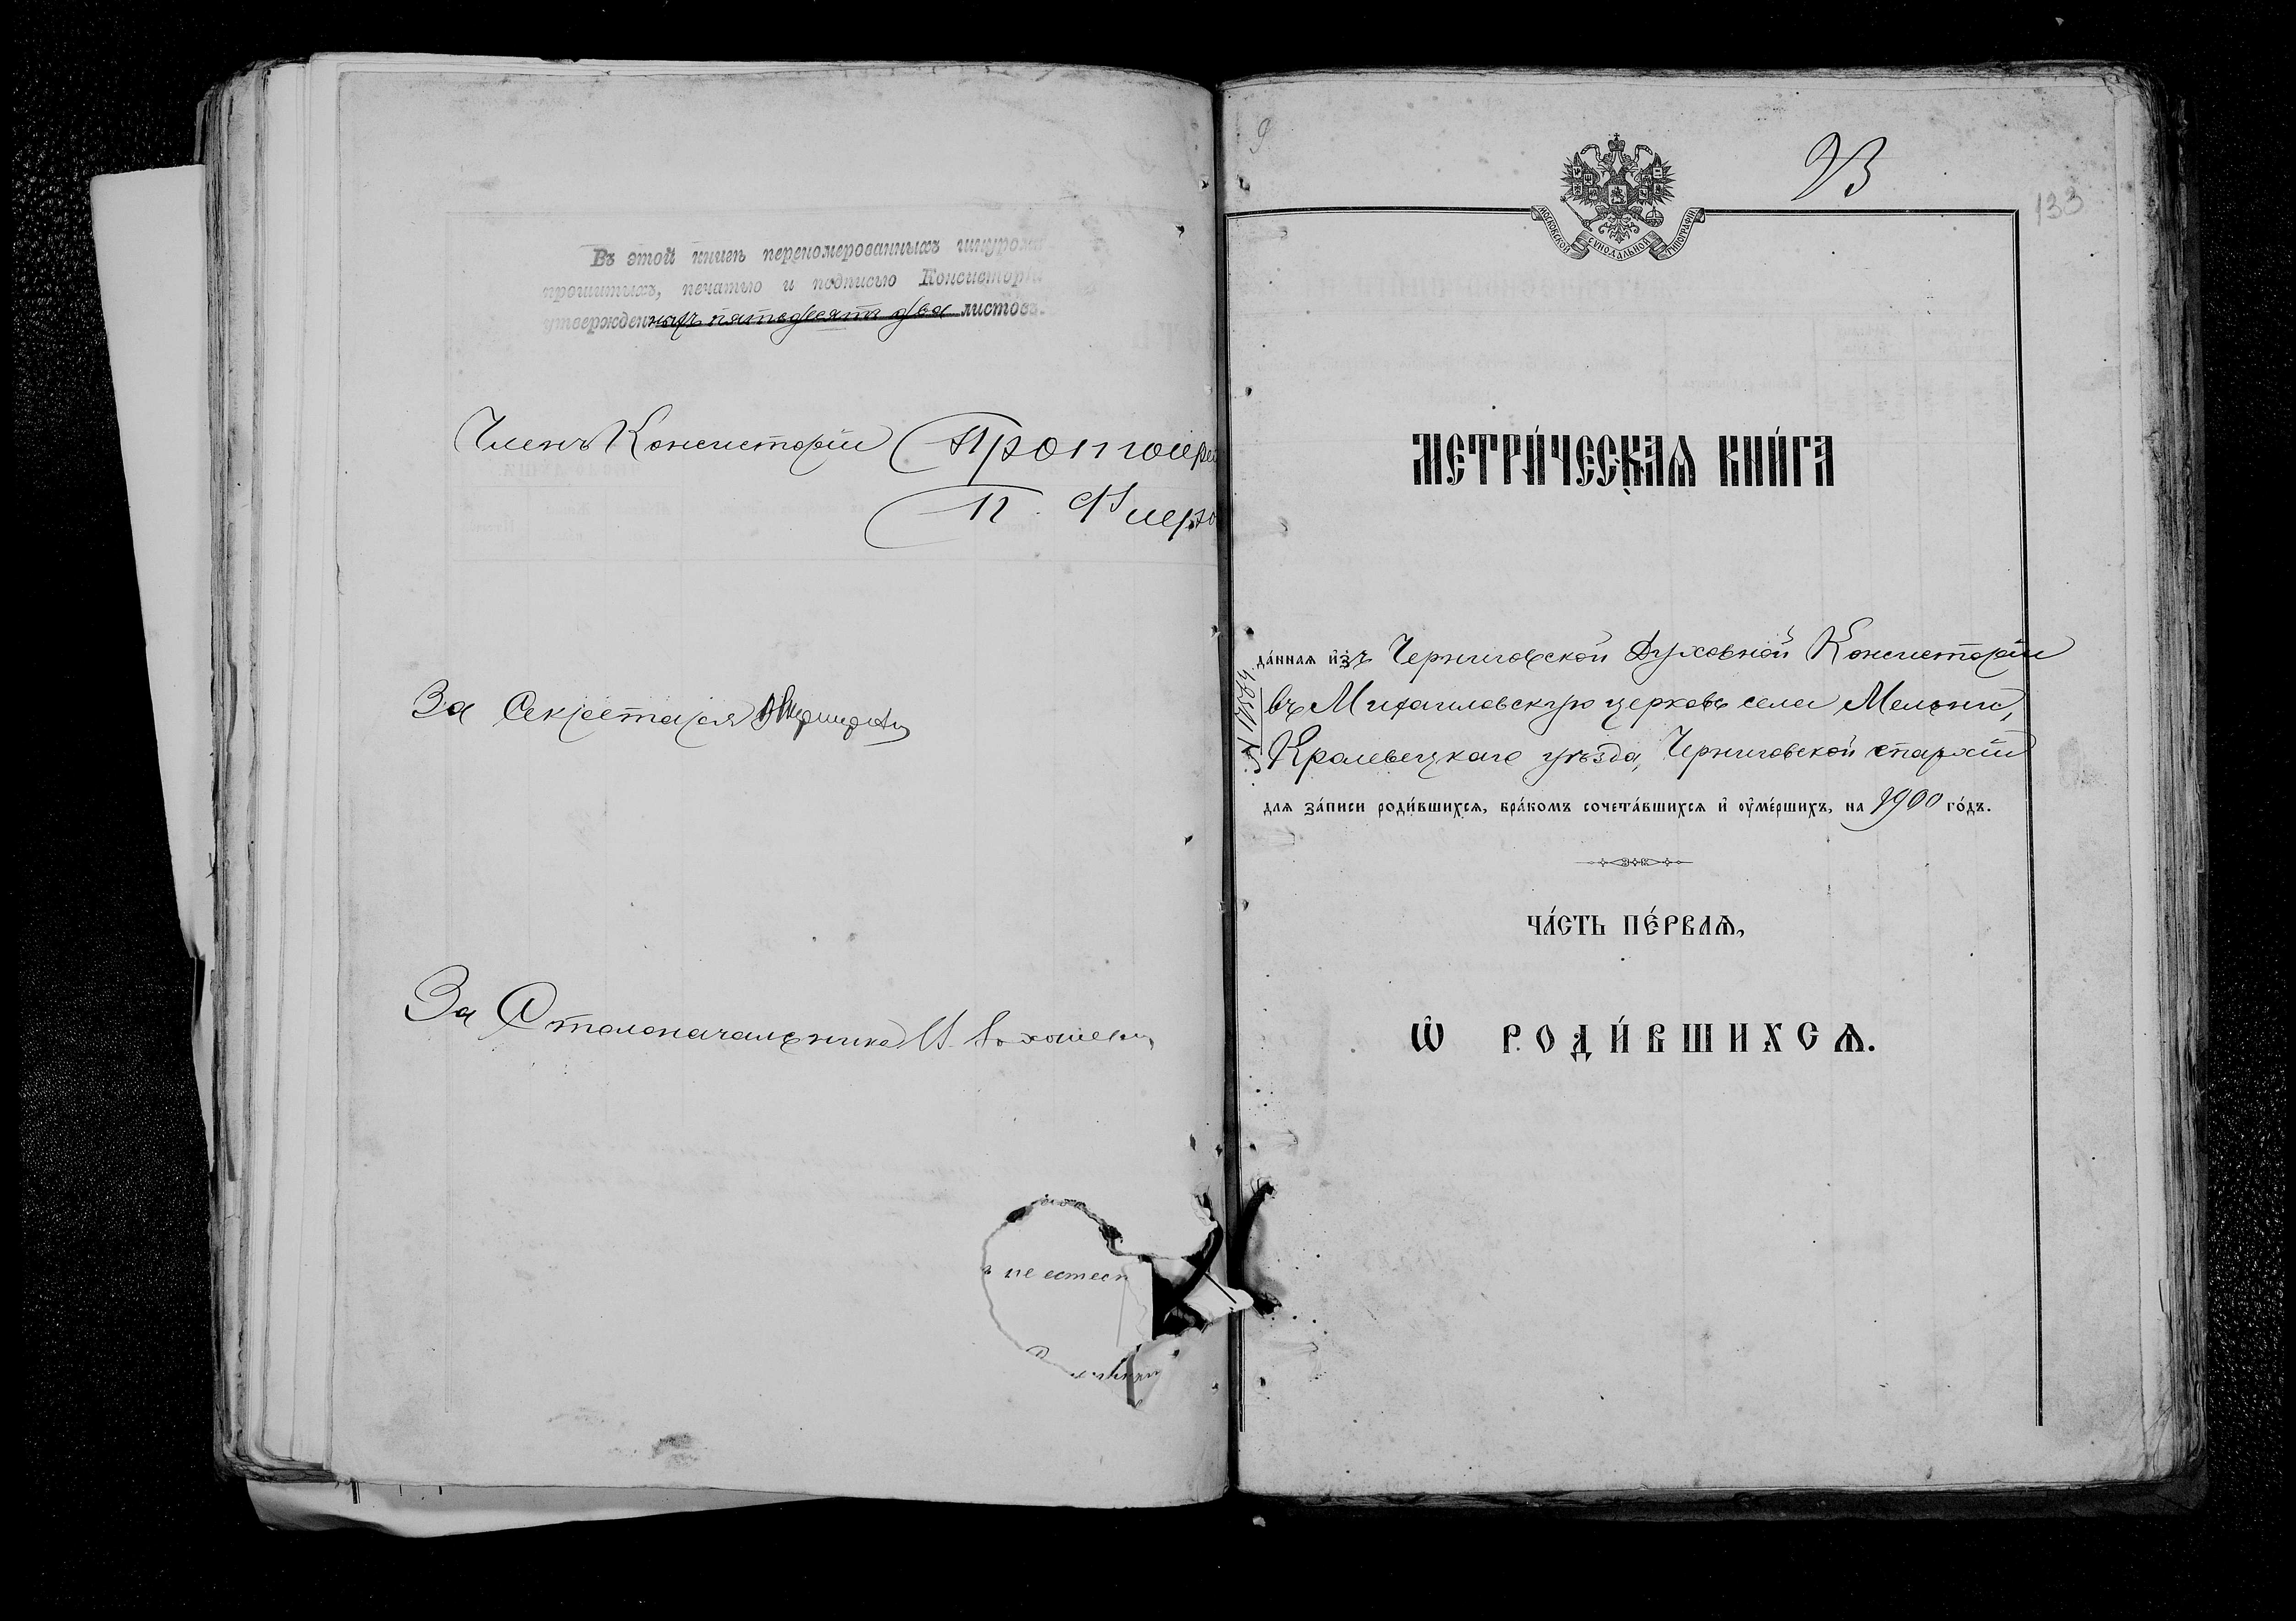 Въ этой книгѣ перепомерованныхъ шнуромъ
прошитыхъ, печатью и подписью Консисторіи
утвержденныхъ пятьдесятъ два листовъ.
Членъ Консисторіи Протоіерей
П.
За Секретаря
За Столоначальника И.
не естест
9
23
133
МОСКОВСКОЙ СѴНОДАЛЬНОЙ ТИПОГРАФІИ
МЕТРИ́ЧЕСКАѦ КНИ́ГА
да́ннаѧ и҆зъ Черниговской Духовной Консисторіи
въ Михаиловскую церковь села Мельни,
Кролевецкаго уѣзда, Черниговской епархіи
для за́писи роди́вшихсѧ, бра́комъ сочета́вшихсѧ и҆ оу҆ме́ршихъ, на 1900 го́дъ.
ЧА́СТЬ ПЕ́РВАѦ,
Ѽ РОДИ́ВШИХСѦ.